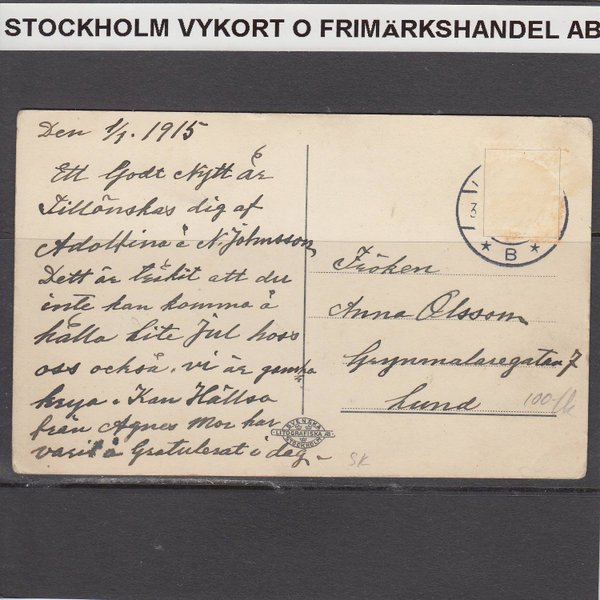 STOCKHOLM VYKORT O FRIMÄRKSHANDEL AB
Den 1/1. 1915
Ett Godt Nytt År
Tillönskas dig af
Adolfina å N. Johnsson,
Dett är tråkit att du
inte kan komma å
hålla lite Jul hoss
oss också. vi är ganska
krya. Kan Hällsa
från Agnes Mor har
varit å Gratulerat i dag.
Fröken
Anna Olsson
Grynmalaregatan 7
Lund
3
B
100:-
SVENSKA
LITOGRAFISKA AB.
STOCKHOLM
SK